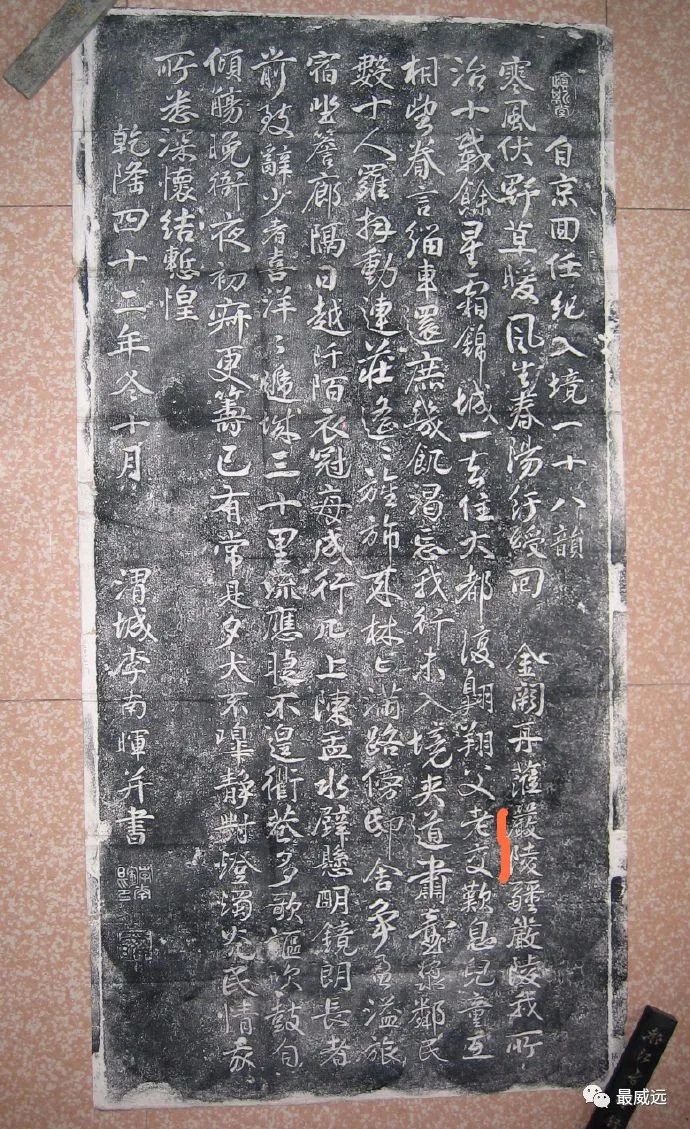 自京回任紀入境一十八韻
寒風伏野草暖風生春陽紆綬回 金闕再蒞嚴陵疆嚴陵我所
治十載餘星霜錦城一去住大都復翱翔父老交歎息兒童互
相望眷言緇車還庶幾飢渴忘我行未入境夾道肅壺漿鄰民
數十人羅拜動連莊遙々旌旆來林々滿路傍郵舍爭盈溢旅
宿坐簷廊隅日越阡陌衣冠每成行几上陳盂水壁懸明鏡朗長者
前致辭少者喜洋々遞城三十里流應聽不遑衢巷多歌謳吹鼓自
傾觴晚衙夜初寂更籌已有常是夕犬不嘷靜對燈燭光民情我
所悉深懷結慙惶
乾隆四十二年冬十月 渭城李南暉并書
最威远